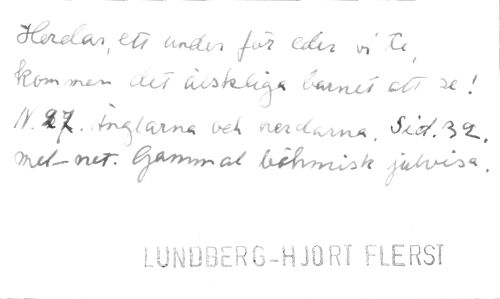 Herdar, ett under för eder vi te,
kommen det älskliga barnet att se!
N. 27. Änglarna och herdarna. Sid. 32.
mel-not. Gammal böhmisk julvisa.
LUNDBERG-HJORT FLERST